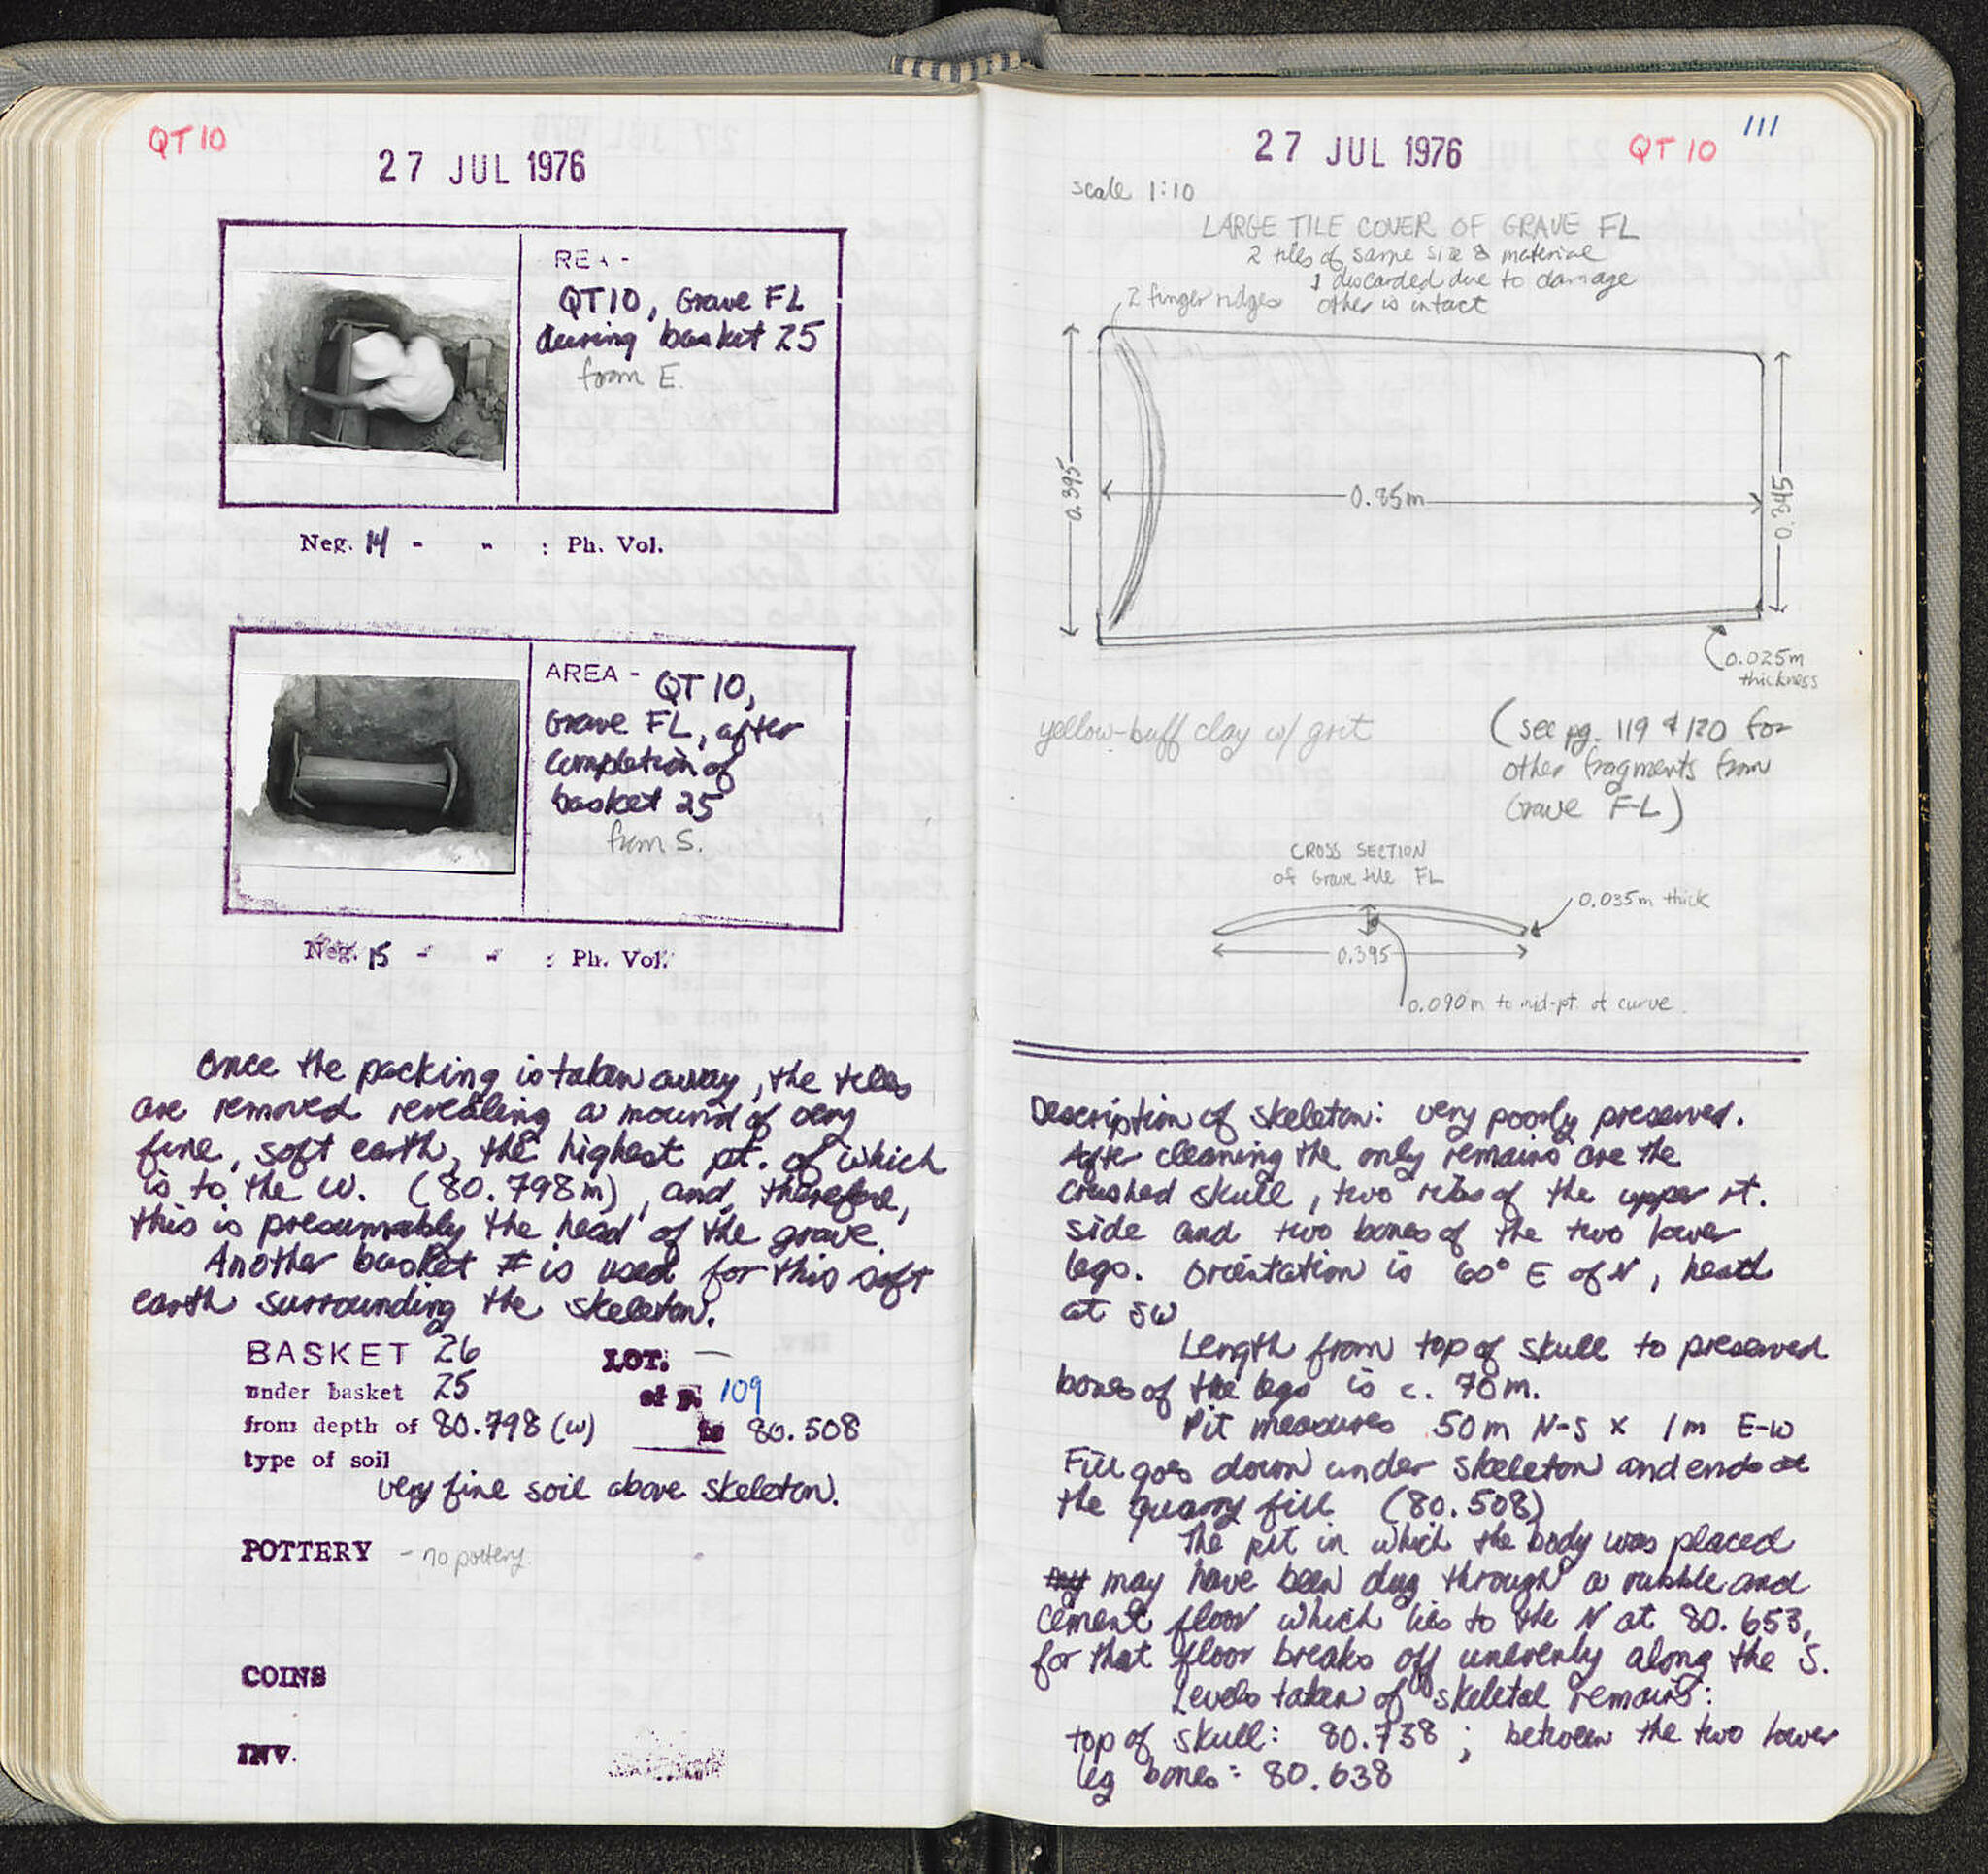 QT 10
27 JUL 1976
REA -
QT10, Grave FL
during basket 25
from E.
Neg. 14 - - : Ph. Vol.
AREA - QT 10,
Grave FL, after
completion of
basket 25
from S.
Neg. 15 - - : Ph. Vol.
Once the packing is taken away, the tiles
are removed revealing a mound of very
fine, soft earth, the highest pt. of which
is to the W. (80.798m), and, therefore,
this is presumably the head of the grave.
Another basket # is used for this soft
earth surrounding the skeleton.
BASKET 26 LOT: —
under basket 25 at p. 109
from depth of 80.798 (w) to 80.508
type of soil
very fine soil above skeleton.
POTTERY - no pottery.
COINS
INV.
27 JUL 1976 QT 10 111
scale 1:10
LARGE TILE COVER OF GRAVE FL
2 tiles of same size & material
1 discarded due to damage
other is intact
2 finger ridges
0.395
0.85m
0.345
0.025m
thickness
yellow-buff clay w/ grit
(see pg. 119 & 120 for
other fragments from
Grave F-L)
CROSS SECTION
of Grave tile FL
0.035m thick
0.395
0.090m to mid-pt. of curve
Description of skeleton: very poorly preserved.
After cleaning the only remains are the
crushed skull, two ribs of the upper rt.
side and two bones of the two lower
legs. Orientation is 60° E of N, head
at SW
Length from top of skull to preserved
bones of the legs is c. .70m.
Pit measures .50m N-S x 1m E-W
Fill goes down under skeleton and ends at
the quarry fill (80.508)
The pit in which the body was placed
may may have been dug through a rubble and
cement floor which lies to the N at 80.653,
for that floor breaks off unevenly along the S.
Levels taken of skeletal remains:
top of skull: 80.738 ; between the two lower
leg bones: 80.638